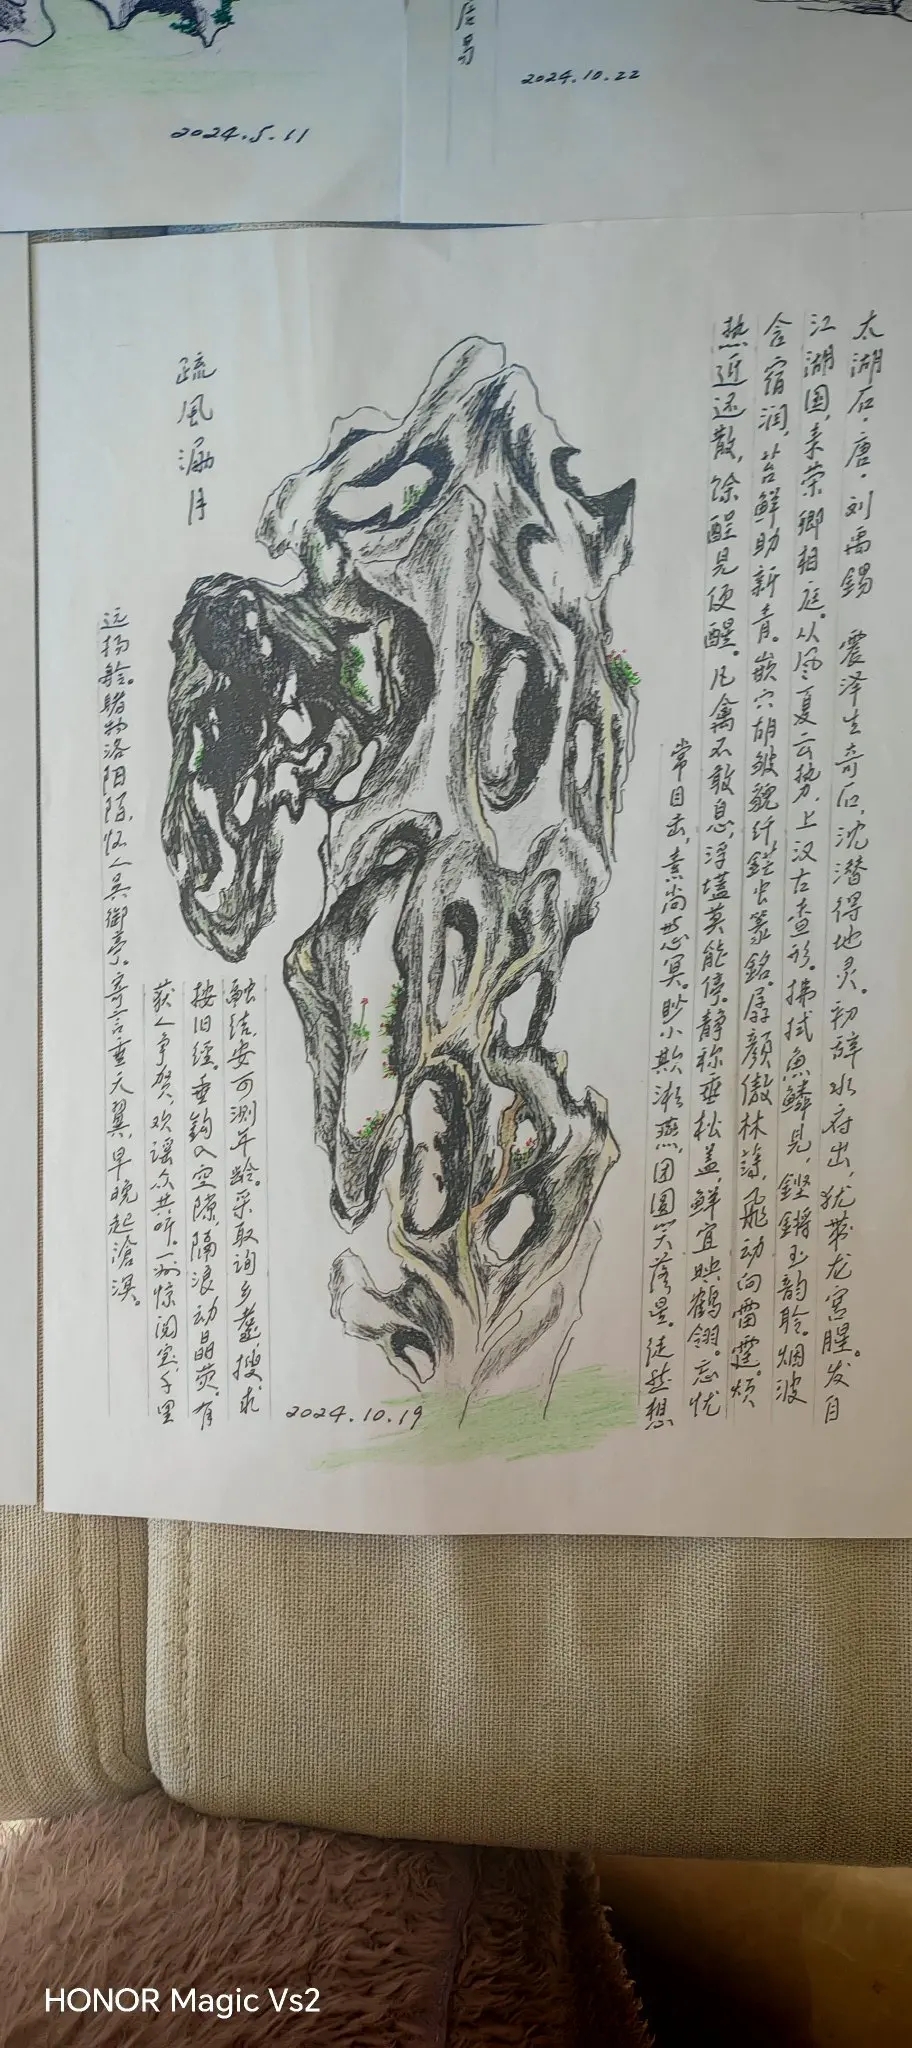 居易
2024.10.22
2024.5.11
太湖石·唐·刘禹錫 震泽生奇石，沈潜得地灵。初辞水府出，犹带龙宫腥。发自
江湖国，来荣卿相庭。从风夏云势，上汉古查形。拂拭魚鳞見，鏗鏘玉韵聆。烟波
含宿润，苔鲜助新青。嵌穴胡皴貌，纤鋩虫篆銘。孱顏傲林薄，飛动向雷霆。烦
热近还散，馀酲見便醒。凡禽不敢息，浮壒莫能停。静称垂松盖，鲜宜映鹤翎。忘忧
常目击，素尚与心冥。眇小欺湘燕，团圆笑落星。徒然想
融结，安可测年龄。采取询乡耋，搜求
按旧经。垂鈎入空隙，隔浪动晶荧。有
获人争贺，欢谣众共听。一州惊阅宝，千里
远扬舲。睹物洛阳陌，怀人吴御亭。寄言垂天翼，早晚起滄溟。
疏風漏月
2024.10.19
HONOR Magic Vs2